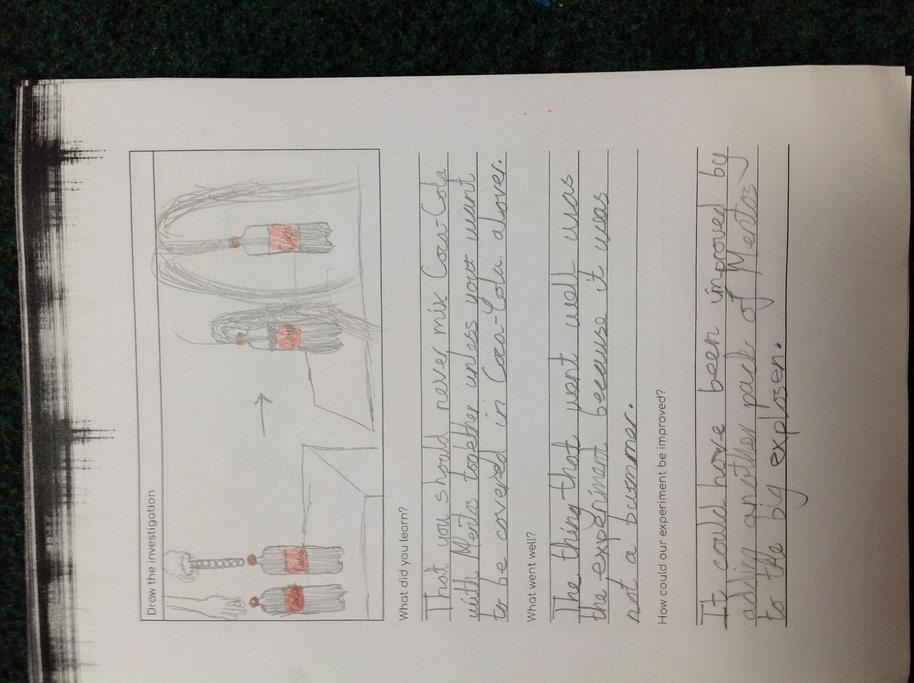 Draw the investigation
What did you learn?
That you should never mix Coca-Cola
with Mentos together unless your want
to be covered in Coca-Cola allover.
What went well?
The thing that went well was
the experiment because it was
not a bummer.
How could our experiment be improved?
It could have been improved by
adding another pack of Mentos
to the big explosen.